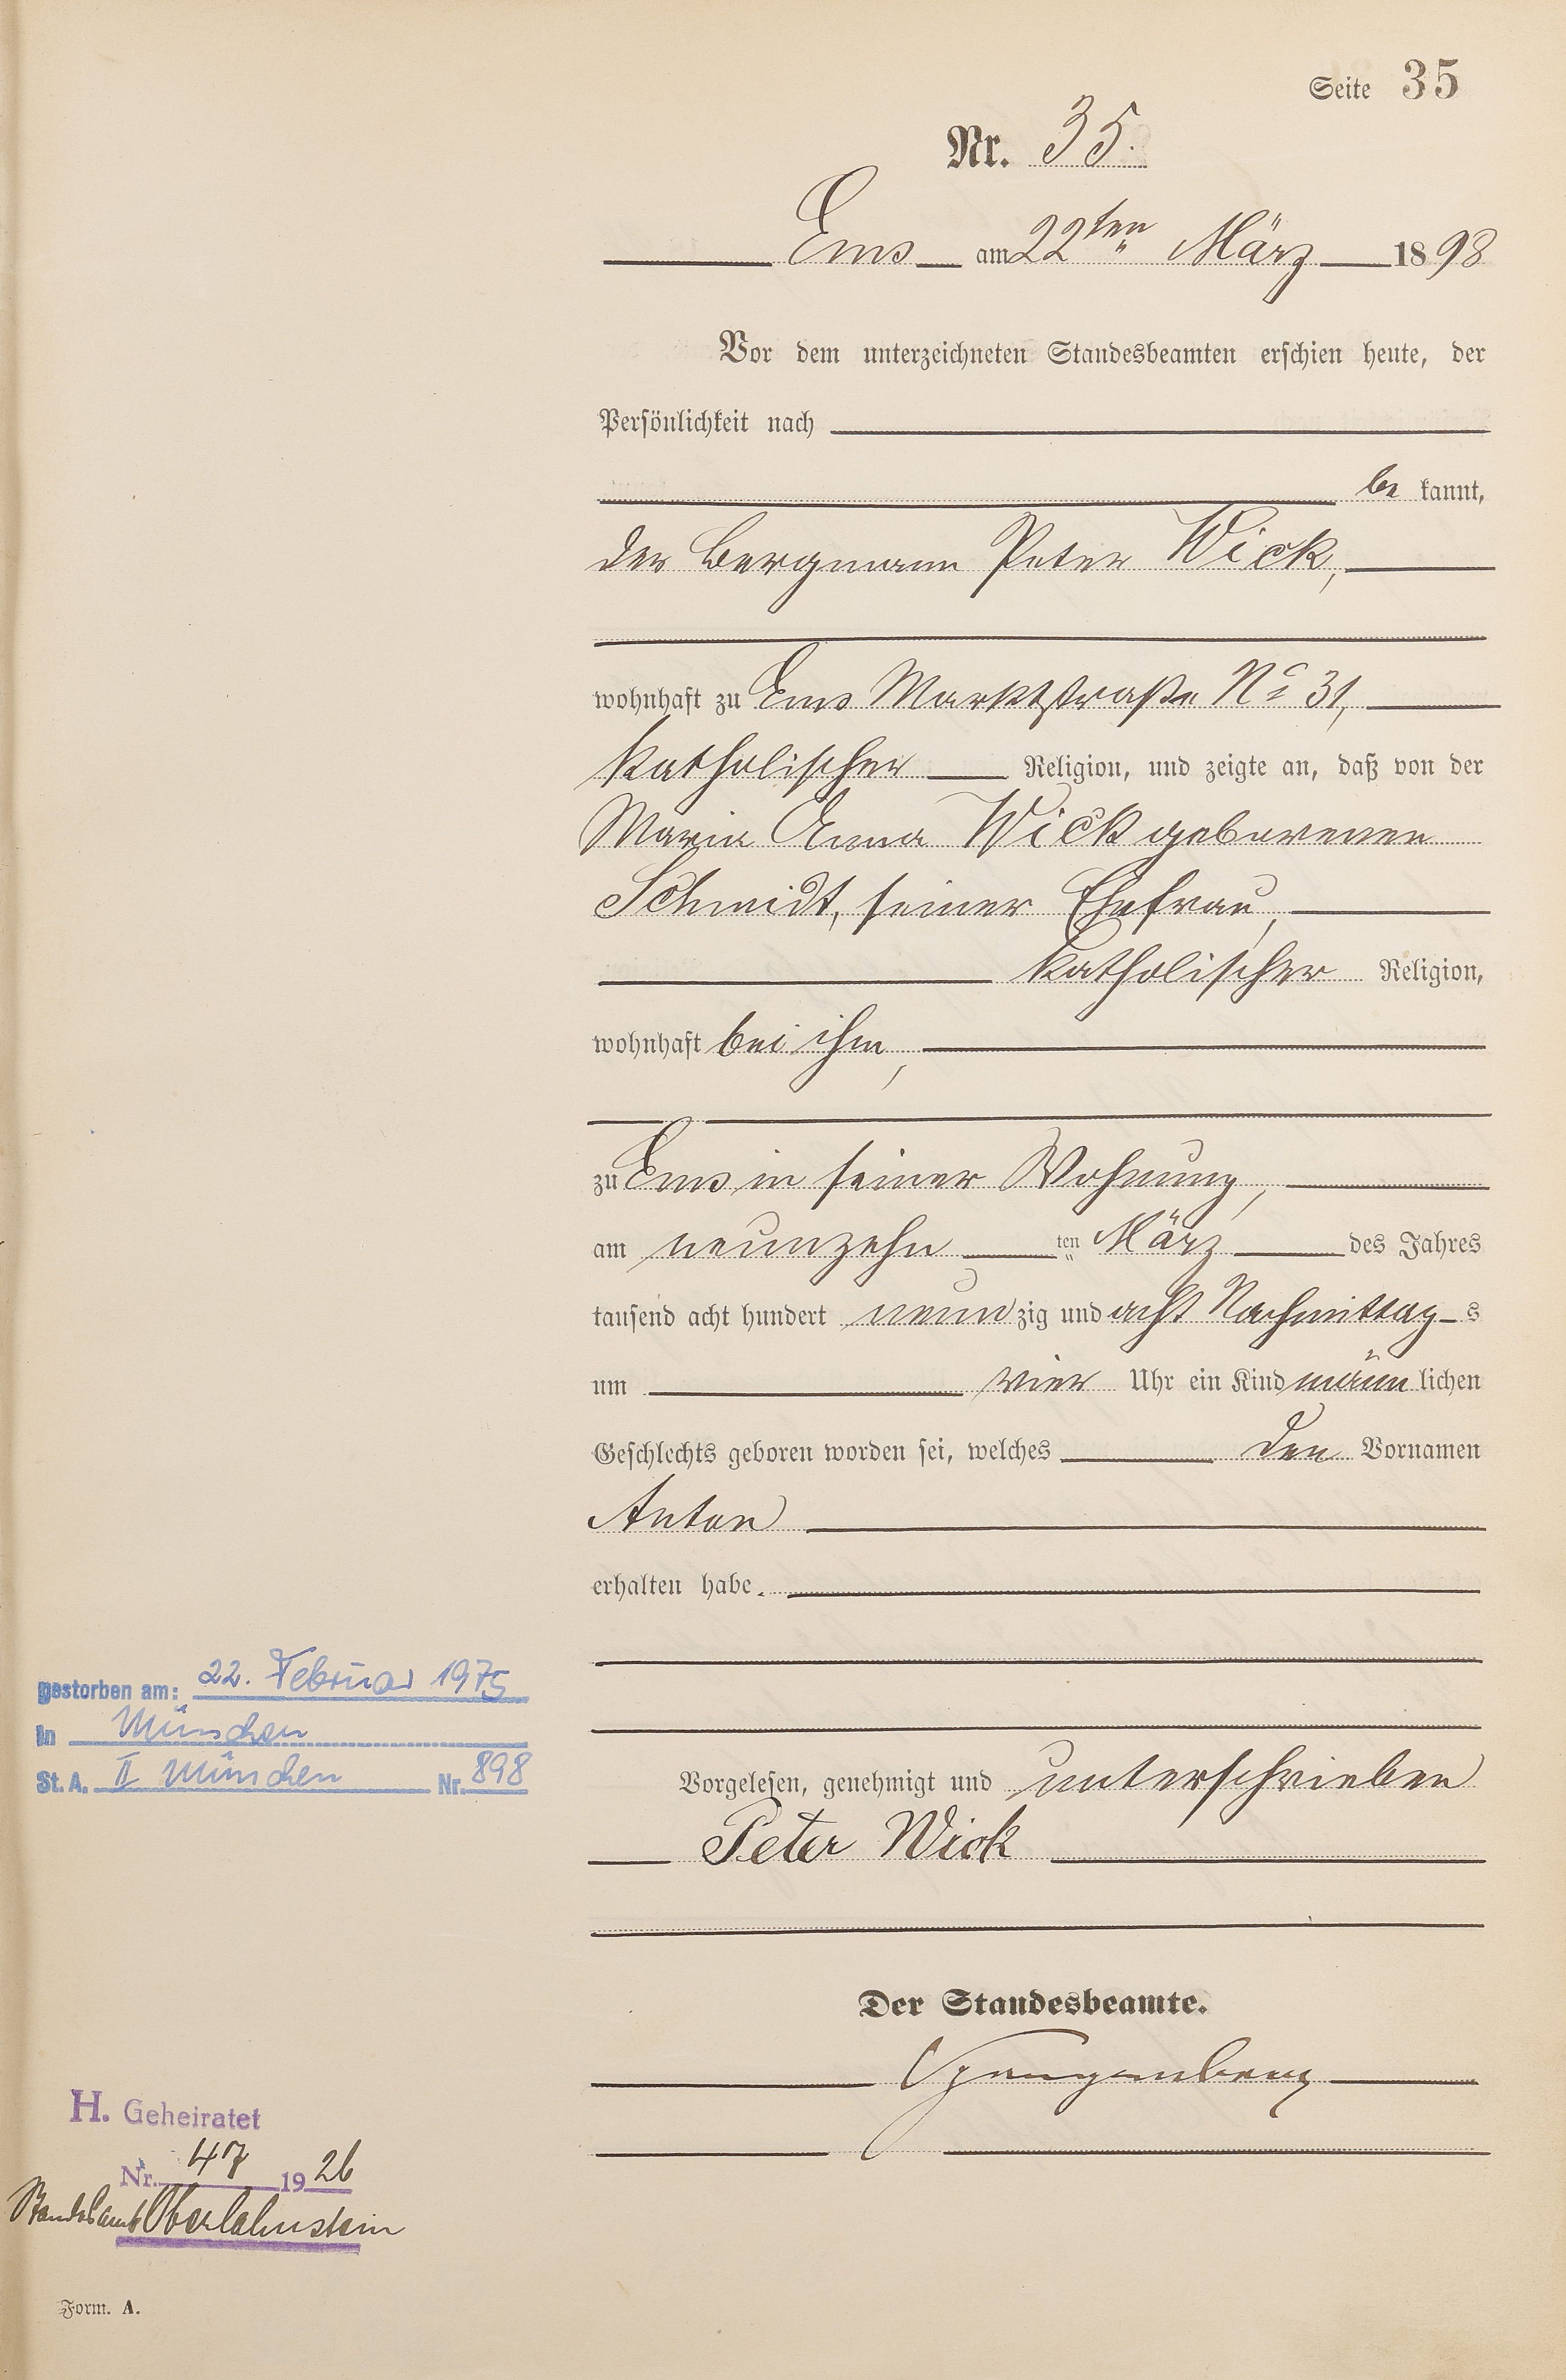 Seite 35
Nr. 35.
Ems am 22ten März 1898
Vor dem unterzeichneten Standesbeamten erschien heute, der
Persönlichkeit nach
be kannt,
der Bergmann Peter Wick,
wohnhaft zu Ems Marktstraße No 31,
katholischer Religion, und zeigte an, daß von der
Maria Anna Wick geborenen
Schmidt, seiner Ehefrau,
katholischer Religion,
wohnhaft bei ihm,
zu Ems in seiner Wohnung,
am neunzehn ten März des Jahres
tausend acht hundert neun zig und acht Nachmittag s
um vier Uhr ein Kind männ lichen
Geschlechts geboren worden sei, welches den Vornamen
Anton
erhalten habe.
gestorben am: 22. Februar 1975
in München
St. A. II München Nr. 898
Vorgelesen, genehmigt und unterschrieben
Peter Wick
Der Standesbeamte.
H. Geheiratet
Nr. 47 1926
Standesamt Oberlahnstein
Form. A.